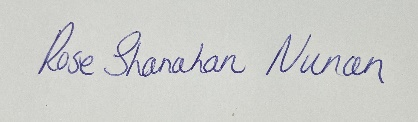 Rose Shanahan Nunan